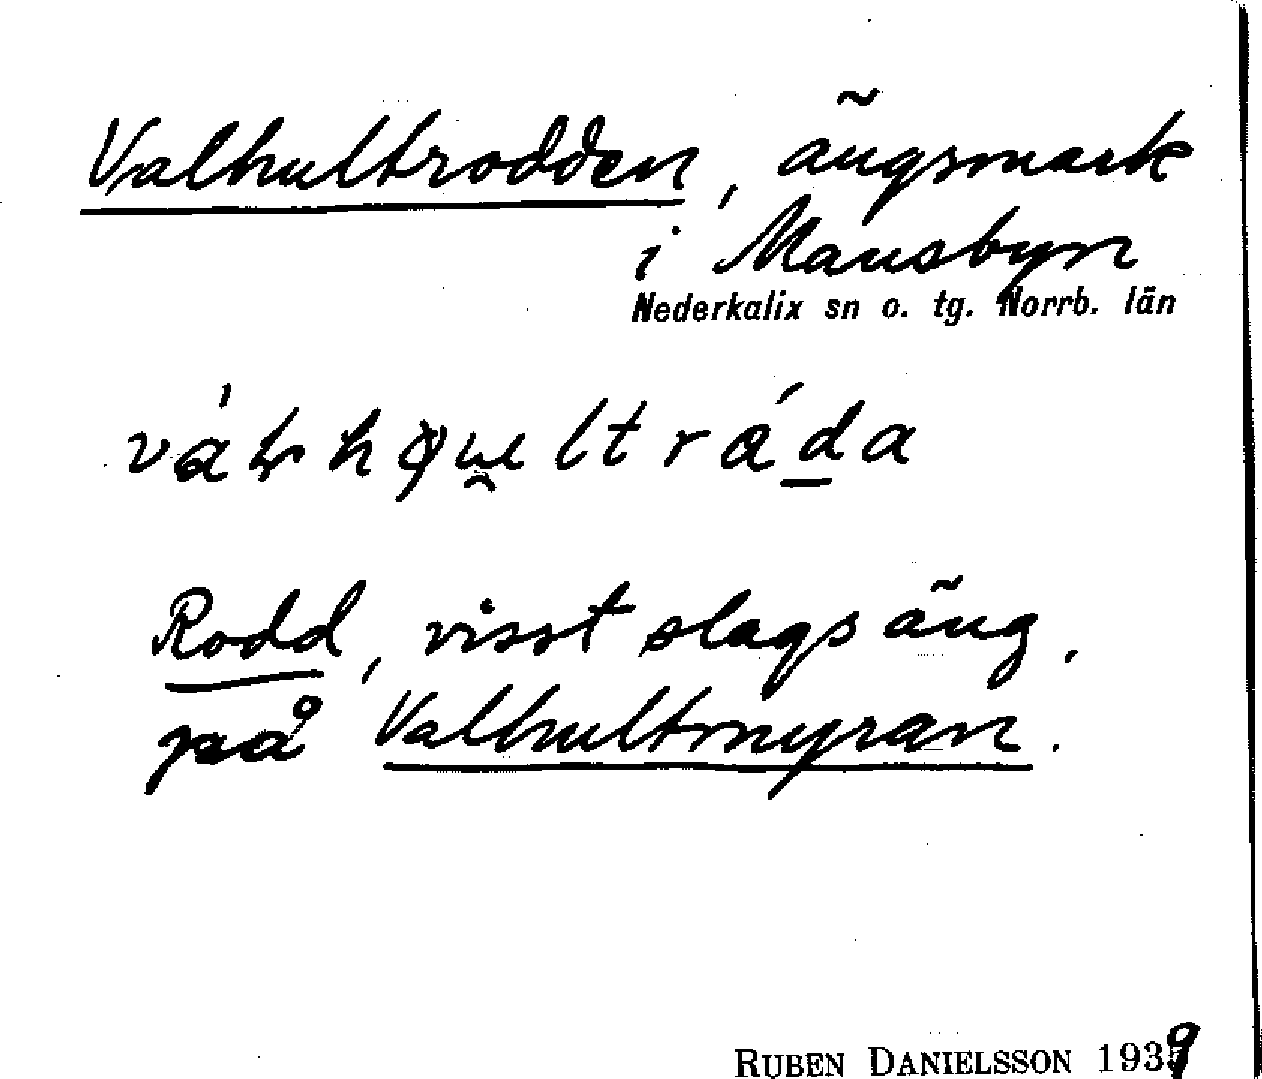 Valhultrodden, ängsmark
i Mansbyn
Nederkalix sn o. tg. Norrb. län
Rodd, visst slags äng.
på Valhultmyran.
RUBEN DANIELSSON 1939